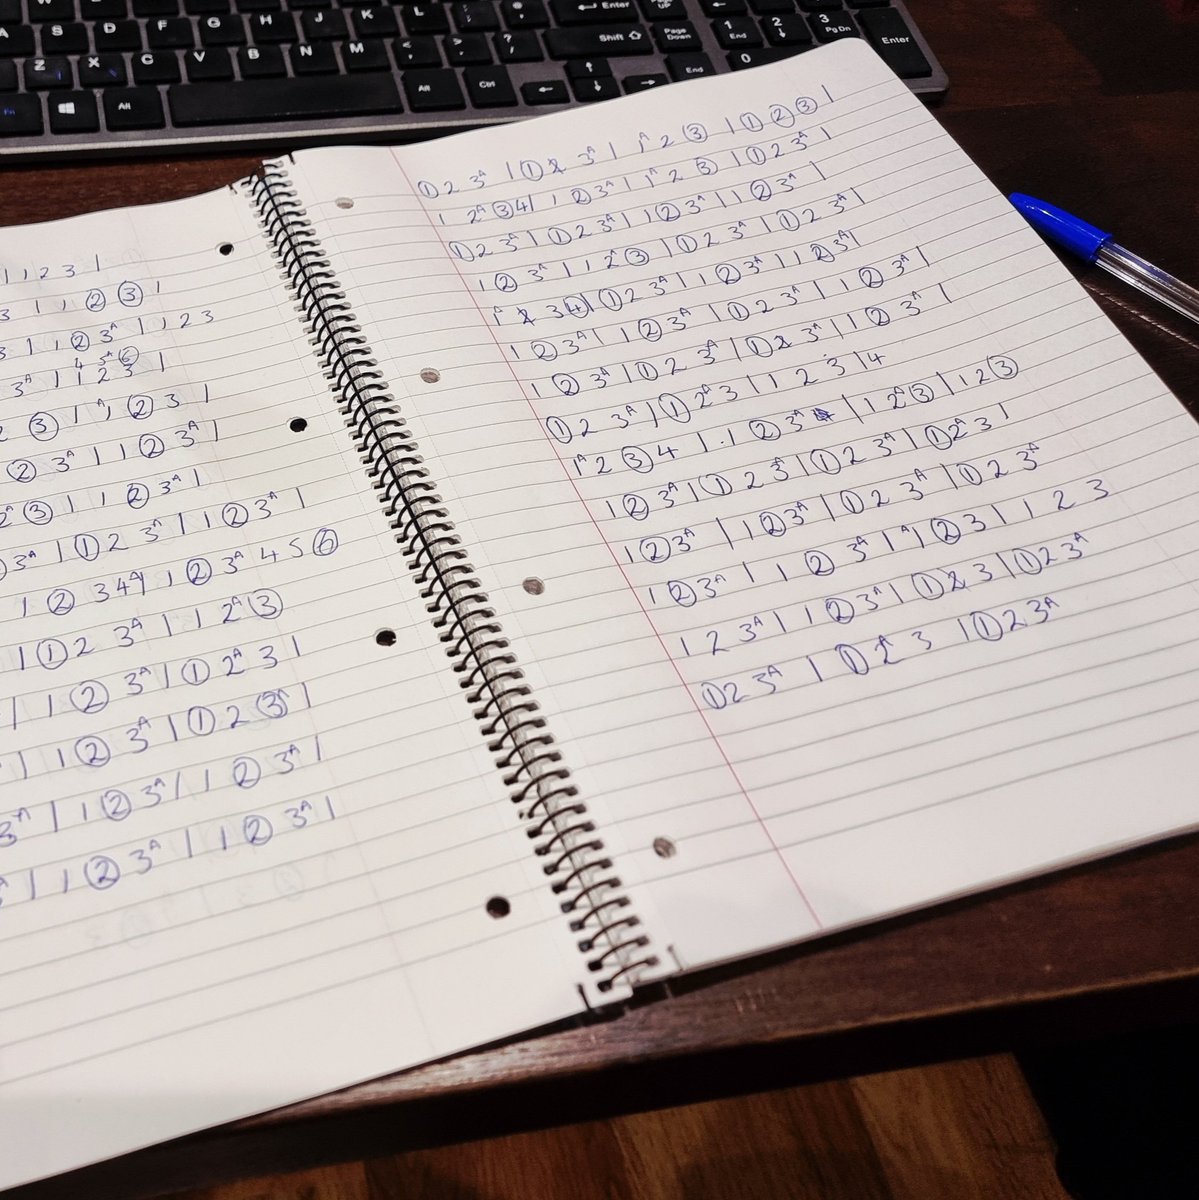 A S D F G H J K L Enter
Z X C V B N M < , > . ? / Shift Page Down End 1 End 2 3 PgDn Enter
Fn Alt Alt Ctrl End 0
| 1 2 3 |
3 | 1 ② ③ |
3 | 1 ② 3^A | 1 2 3
4 5^A ⑥
3^A | 1 2 3 |
2 ③ | ^A1 ② 3 |
② 3^A | 1 ② 3^A |
2^A ③ | 1 ② 3^A |
3^A | ① 2 3^A | 1 ② 3^A |
1 ② 3 4 1 ② 3^A 4 5 ⑥
| ① 2 3^A | 1 2^A ③
| 1 ② 3^A | ① 2^A 3 |
| 1 ② 3^A | ① 2 ③^A |
3^A | 1 ② 3^A | 1 ② 3^A |
| 1 ② 3^A | 1 ② 3^A |
① 2 3^A | ① 2 3^A | 1^A 2 ③ | ① ② ③ |
1 2^A ③ 4 | 1 ② 3^A | 1^A 2 ③ | ① 2 3^A |
① 2 3^A | ① 2 3^A | 1 ② 3^A | 1 ② 3^A |
1 ② 3^A | 1 2^A ③ | ① 2 3^A | ① 2 3^A |
1^A 2 3 ④ | ① 2 3^A | 1 ② 3^A | 1 ② 3^A |
1 ② 3^A | 1 ② 3^A | ① 2 3^A | 1 ② 3^A |
1 ② 3^A | ① 2 3^A | ① 2 3^A | 1 ② 3^A |
① 2 3^A | ① 2^A 3 | 1 2 3 | 4
1^A 2 ③ 4 | 1 ② 3^A | 1 2^A ③ | 1 2 ③
1 ② 3^A | ① 2 3^A | ① 2 3^A | ① 2^A 3 |
1 ② 3^A | 1 ② 3^A | ① 2 3^A | ① 2 3^A
1 ② 3^A | 1 ② 3^A | ^A1 ② 3 | 1 2 3
1 2 3^A | 1 ② 3^A | ① 2 3 | ① 2 3^A
① 2 3^A | ① 2^A 3 | ① 2 3^A